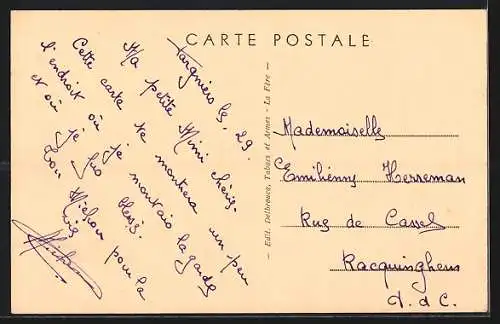 CARTE POSTALE
Targniers le, 29.
Ma petite Mimi chérie
Cette carte te montrera un peu
l'endroit où je montais la garde
et où je fus blessé.
Ton Michou pour la
vie
— Edit. Delbrouce, Tabacs et Armes - La Fère —
Mademoiselle
Emilienne Herreman
Rue de Cassel
Racquinghem
P. d C.